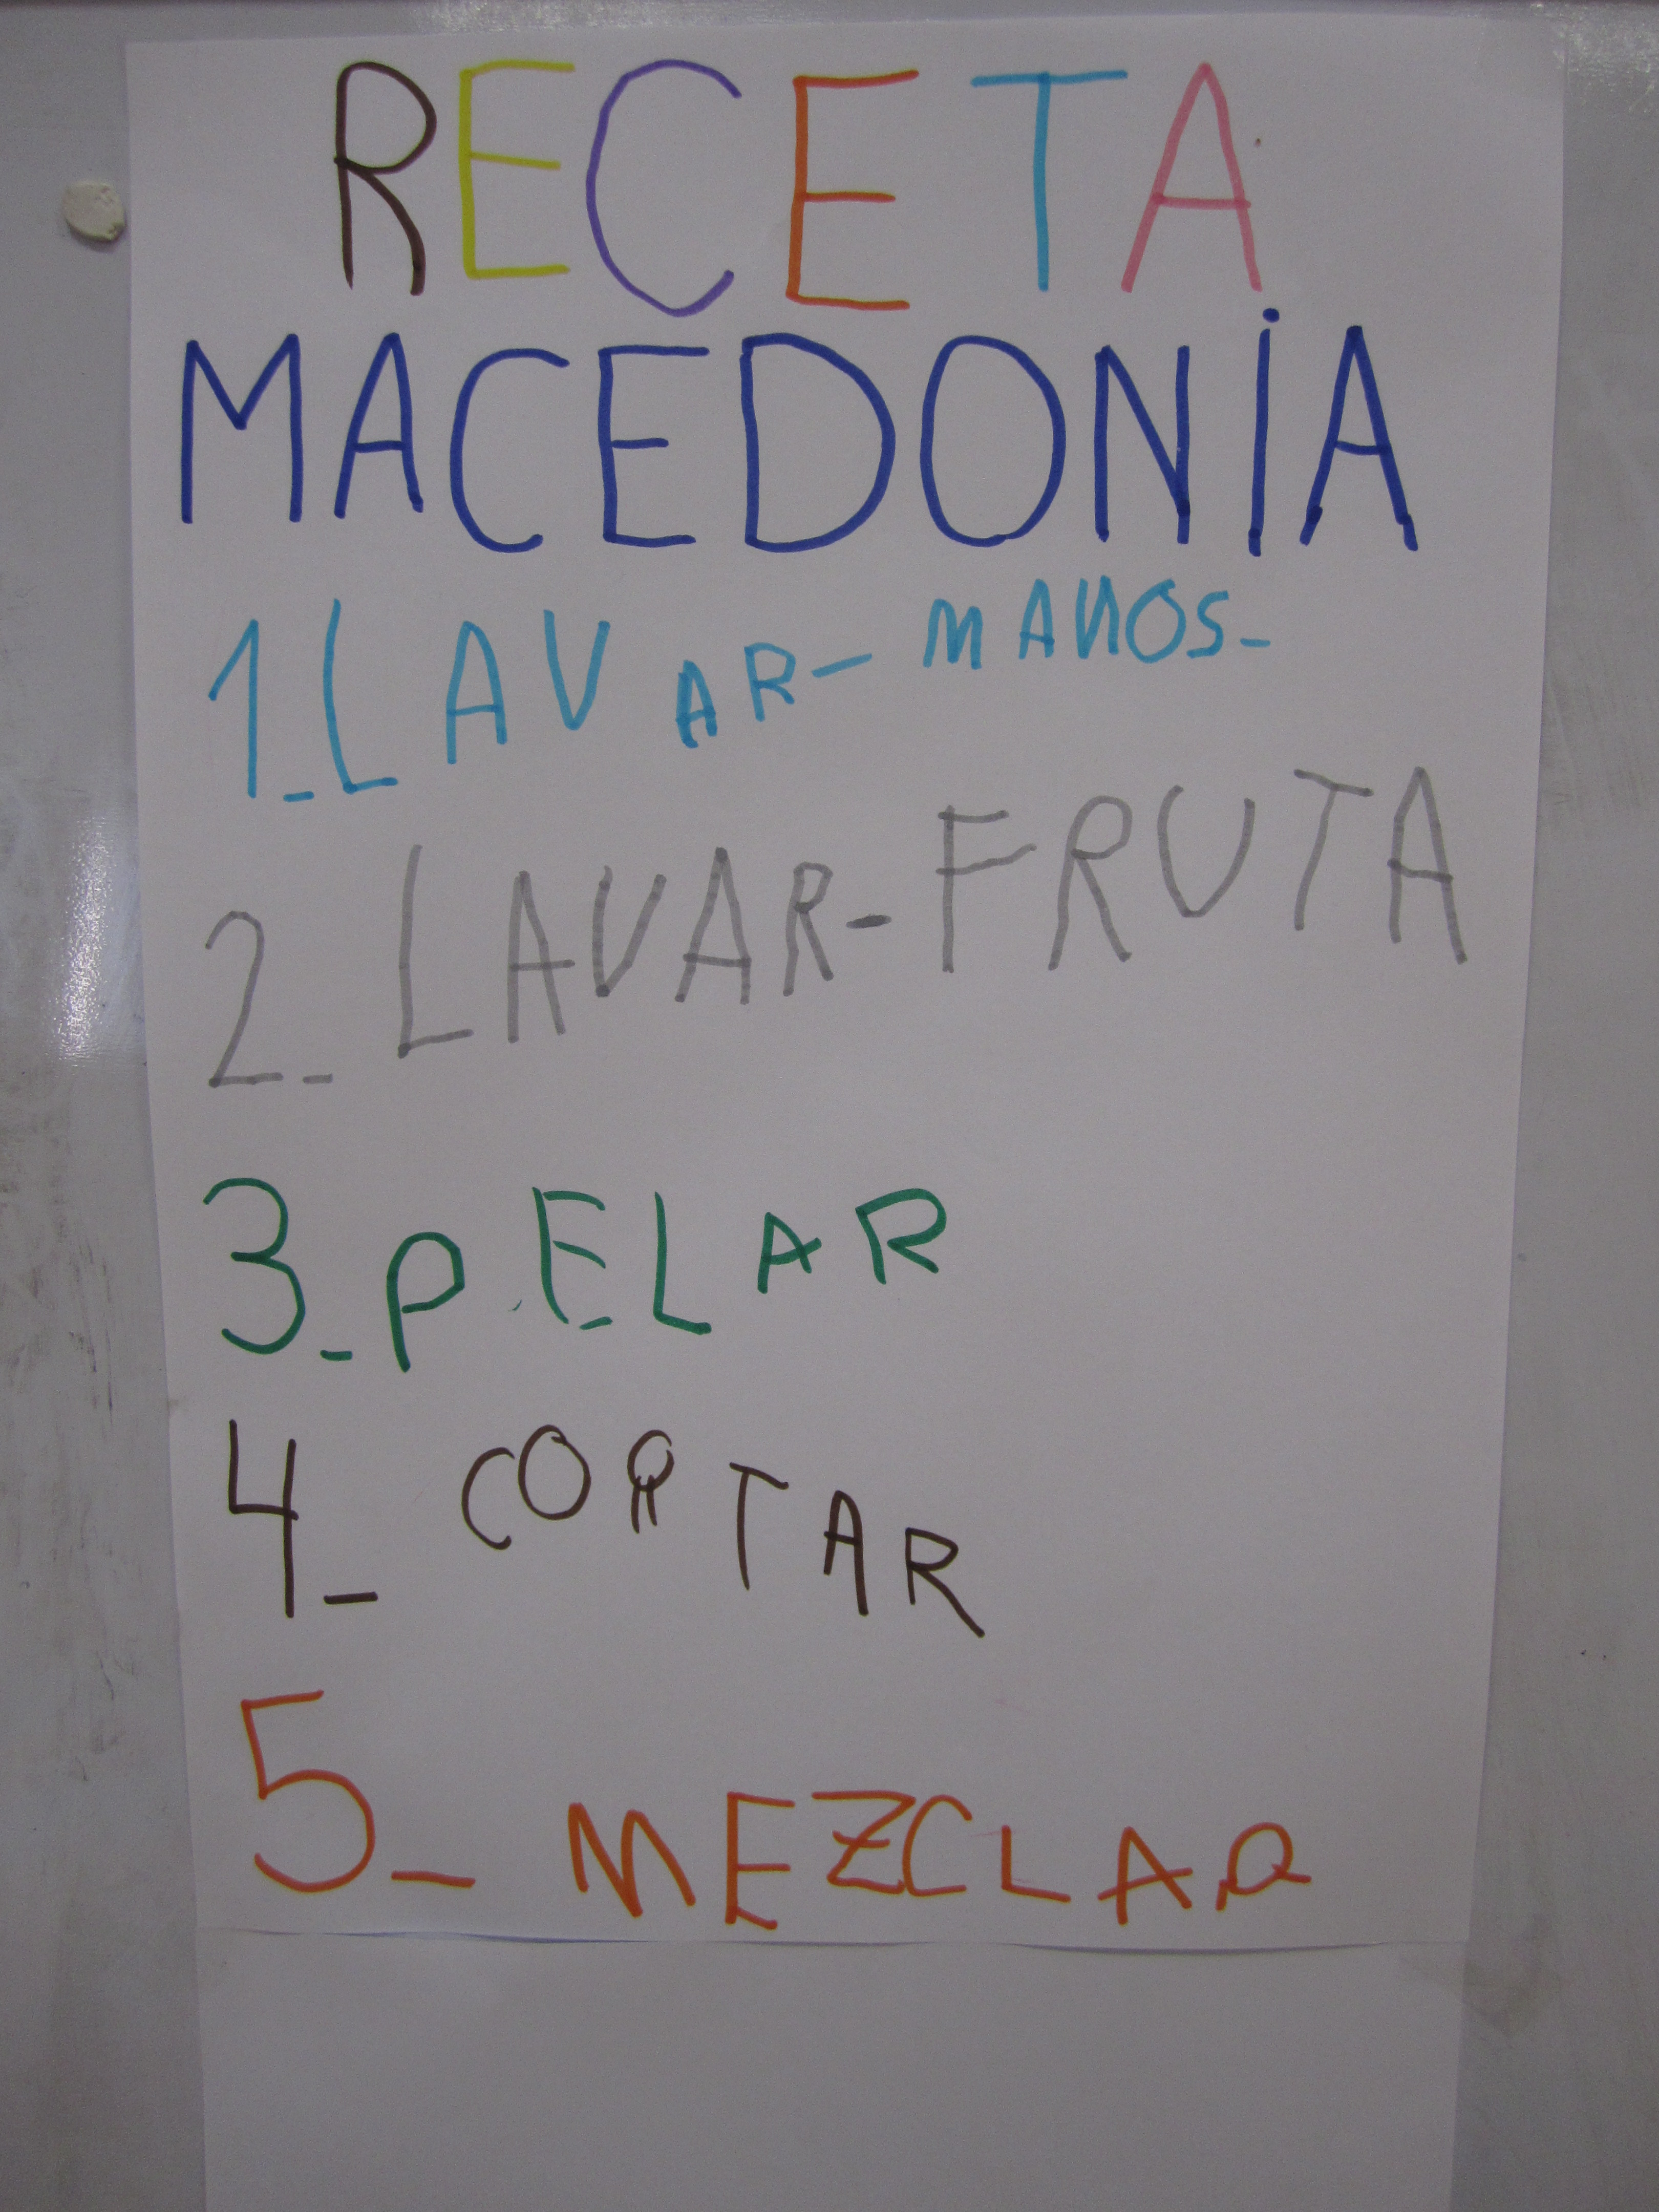 RECETA
MACEDONiA
1_LAVAR-MANOS-
2_LAVAR-FRUTA
3_PELAR
4_CORTAR
5_MEZCLAR